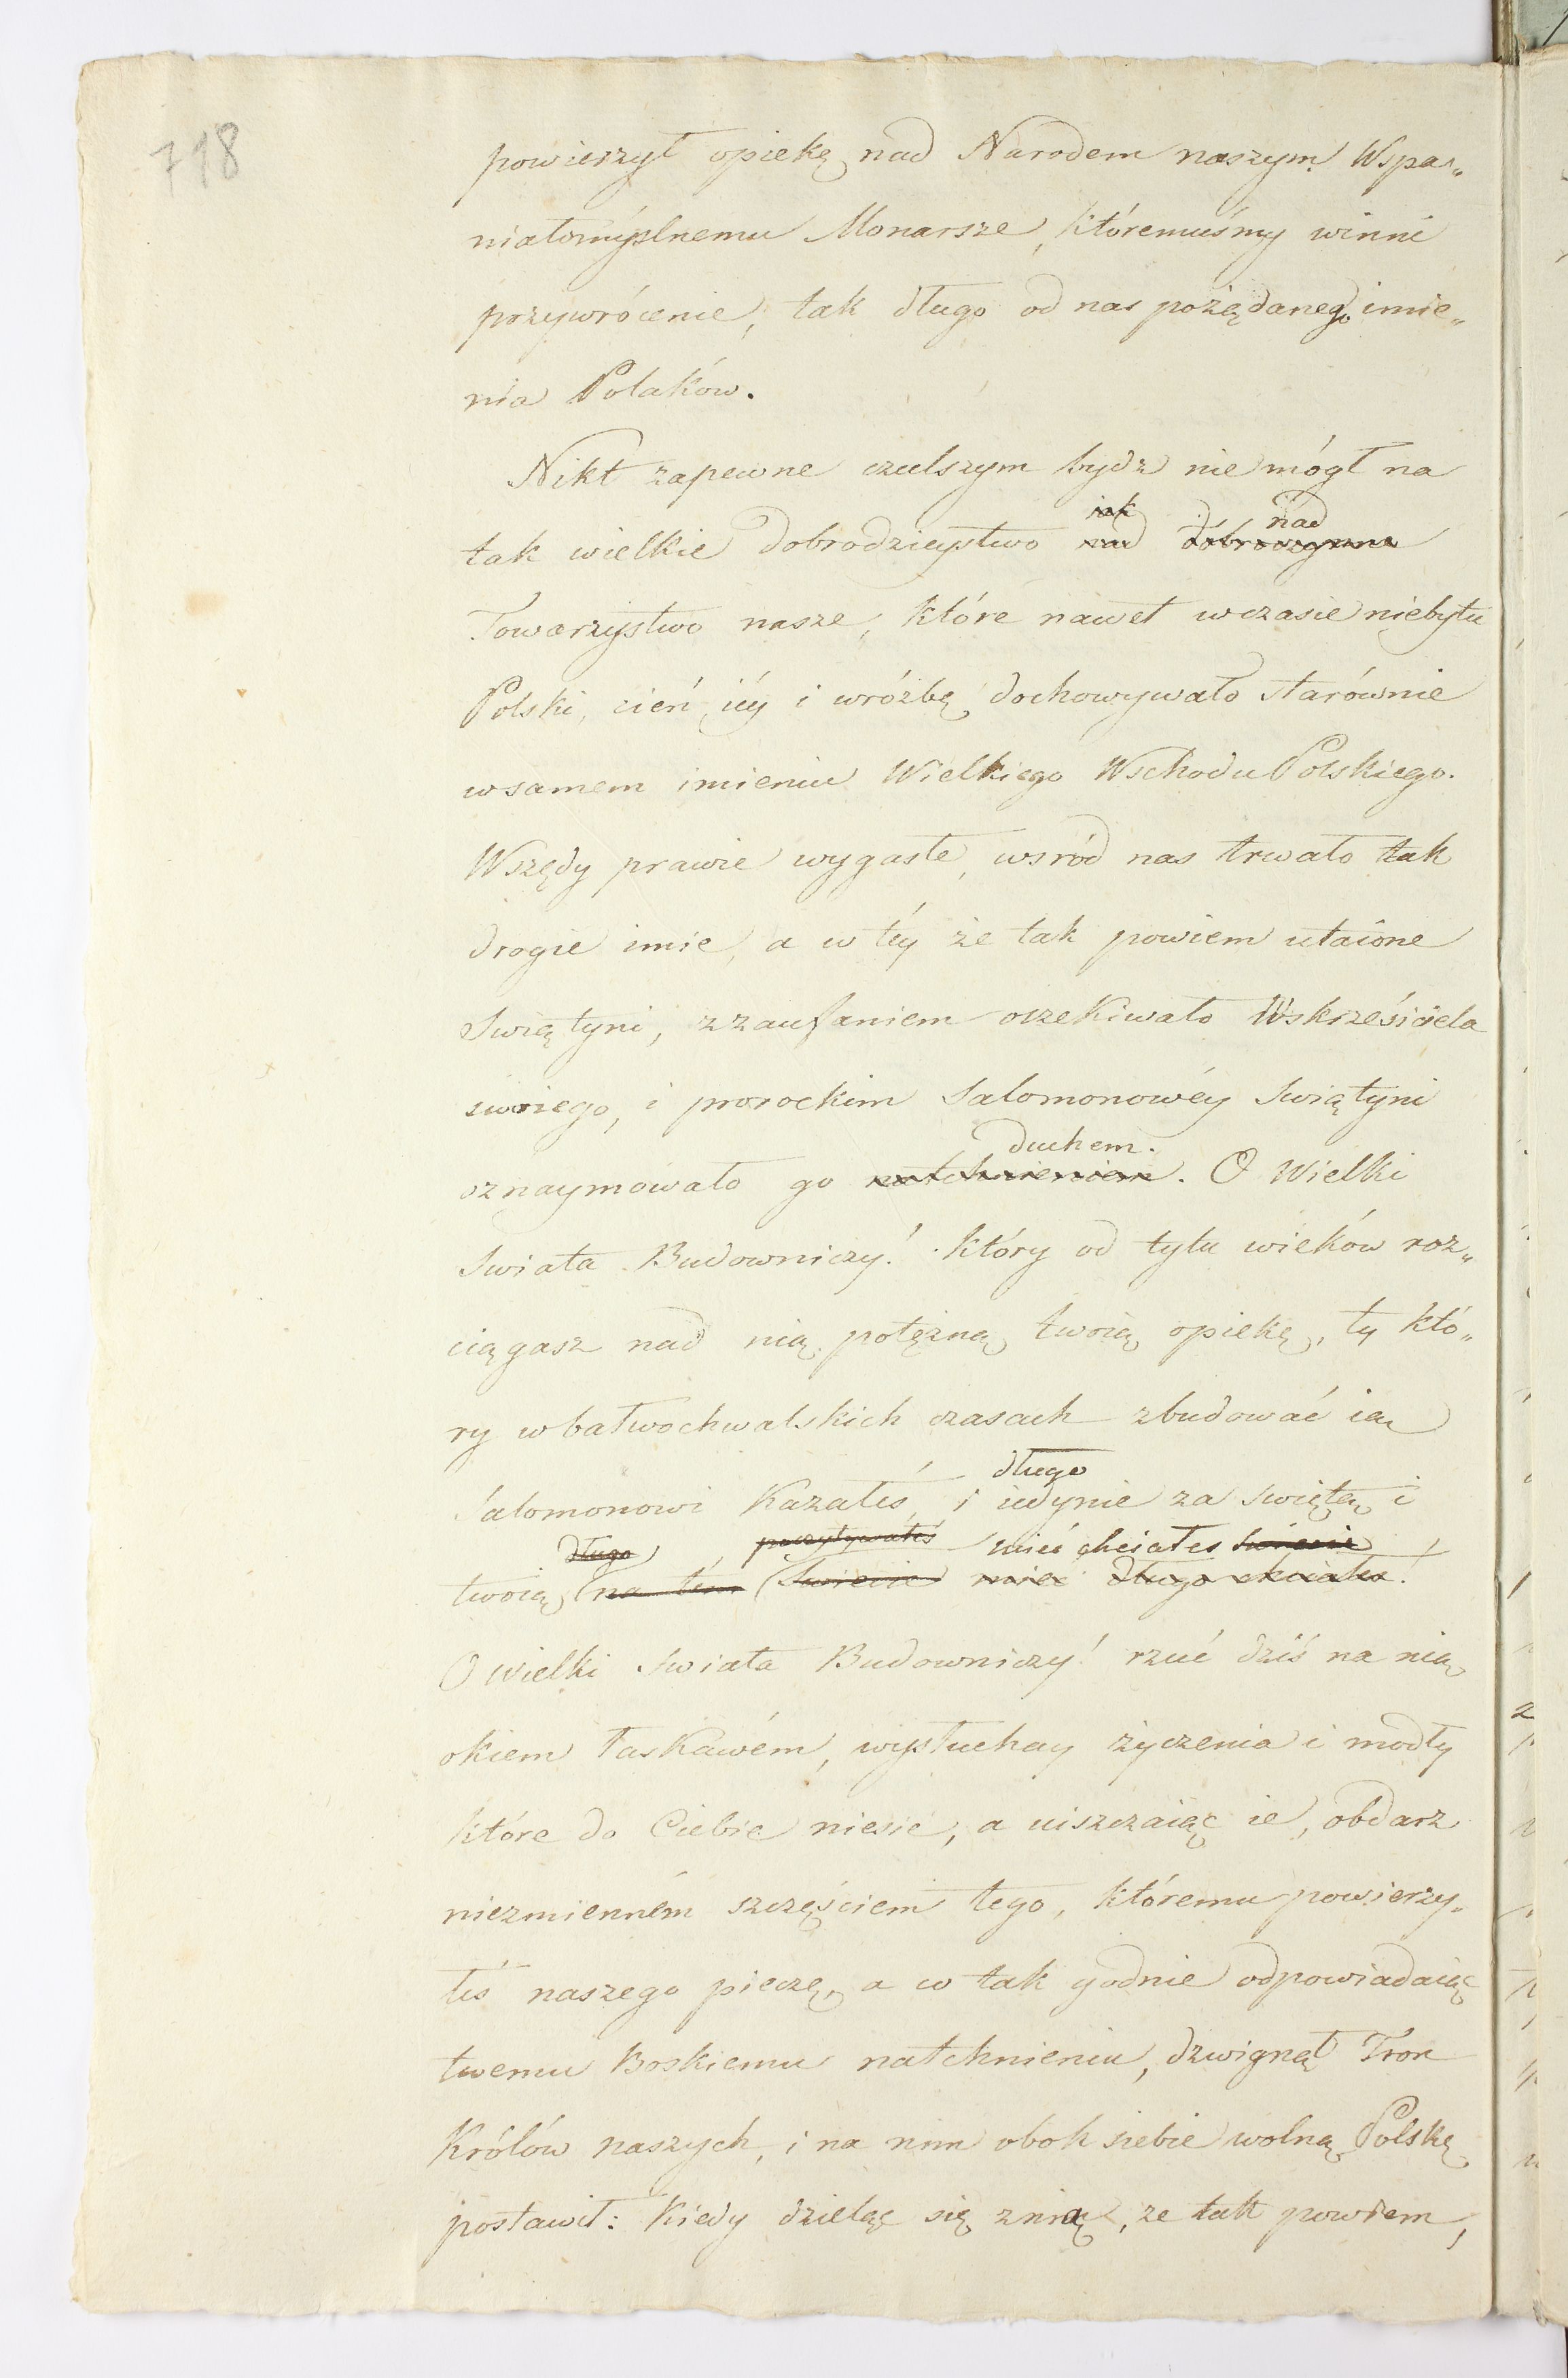 718
powierzył opiekę nad Narodem naszym Wspa„
niałomyślnemu Monarsze, któremuśmy winni
przywrócenie, tak długo od nas pożądanego imie„
nia Polaków.
Nikt zapewne czulszym bydź nie mógł na
iak nad
tak wielkie dobrodzieystwo nad dobroczynne
Towarzystwo nasze, które nawet wczasie niebytu
Polski, cień iéy i wróżbę dochowywało starównie
wsamem imieniu Wielkiego Wschodu Polskiego.
Wszędy prawie wygasłe, wsród nas trwało tak
drogie imie, a w téy że tak powiem utaione
Swiątyni, zzaufaniem oczekiwało Wskrześiciela
swoiego, i prorockim Salomonowéy Swiątyni
duchem.
oznaymowało go natchnieniem. O Wielki
Swiata Budowniczy! który od tylu wieków roz„
ciągasz nad nią potężną twoią opiekę, ty któ„
ry wbałwochwalskich czasach zbudować ią
długo
Salomonowi Kazałeś, i iedynie za swiętą i
długo poczytywałeś mieć chciałes swiecie
twoią na tém Swiecie mieć długo chciałes!
O Wielki Swiata Budowniczy! rzuć dziś na nią
okiem łaskawém, wysłuchay życzenia i modły
które do Ciebie niesie, a uiszczaiąc ie, obdarz
niezmienném szczęściem tego, któremu powierzy„
łeś naszego pieczę, a co tak godnie odpowiadaiąc
twemu Boskiemu natchnieniu, dzwignął Tron
Królów naszych, i na nim obok siebie wolną Polskę
postawił: Kiedy dzieląc się znią, ze tak powiem,